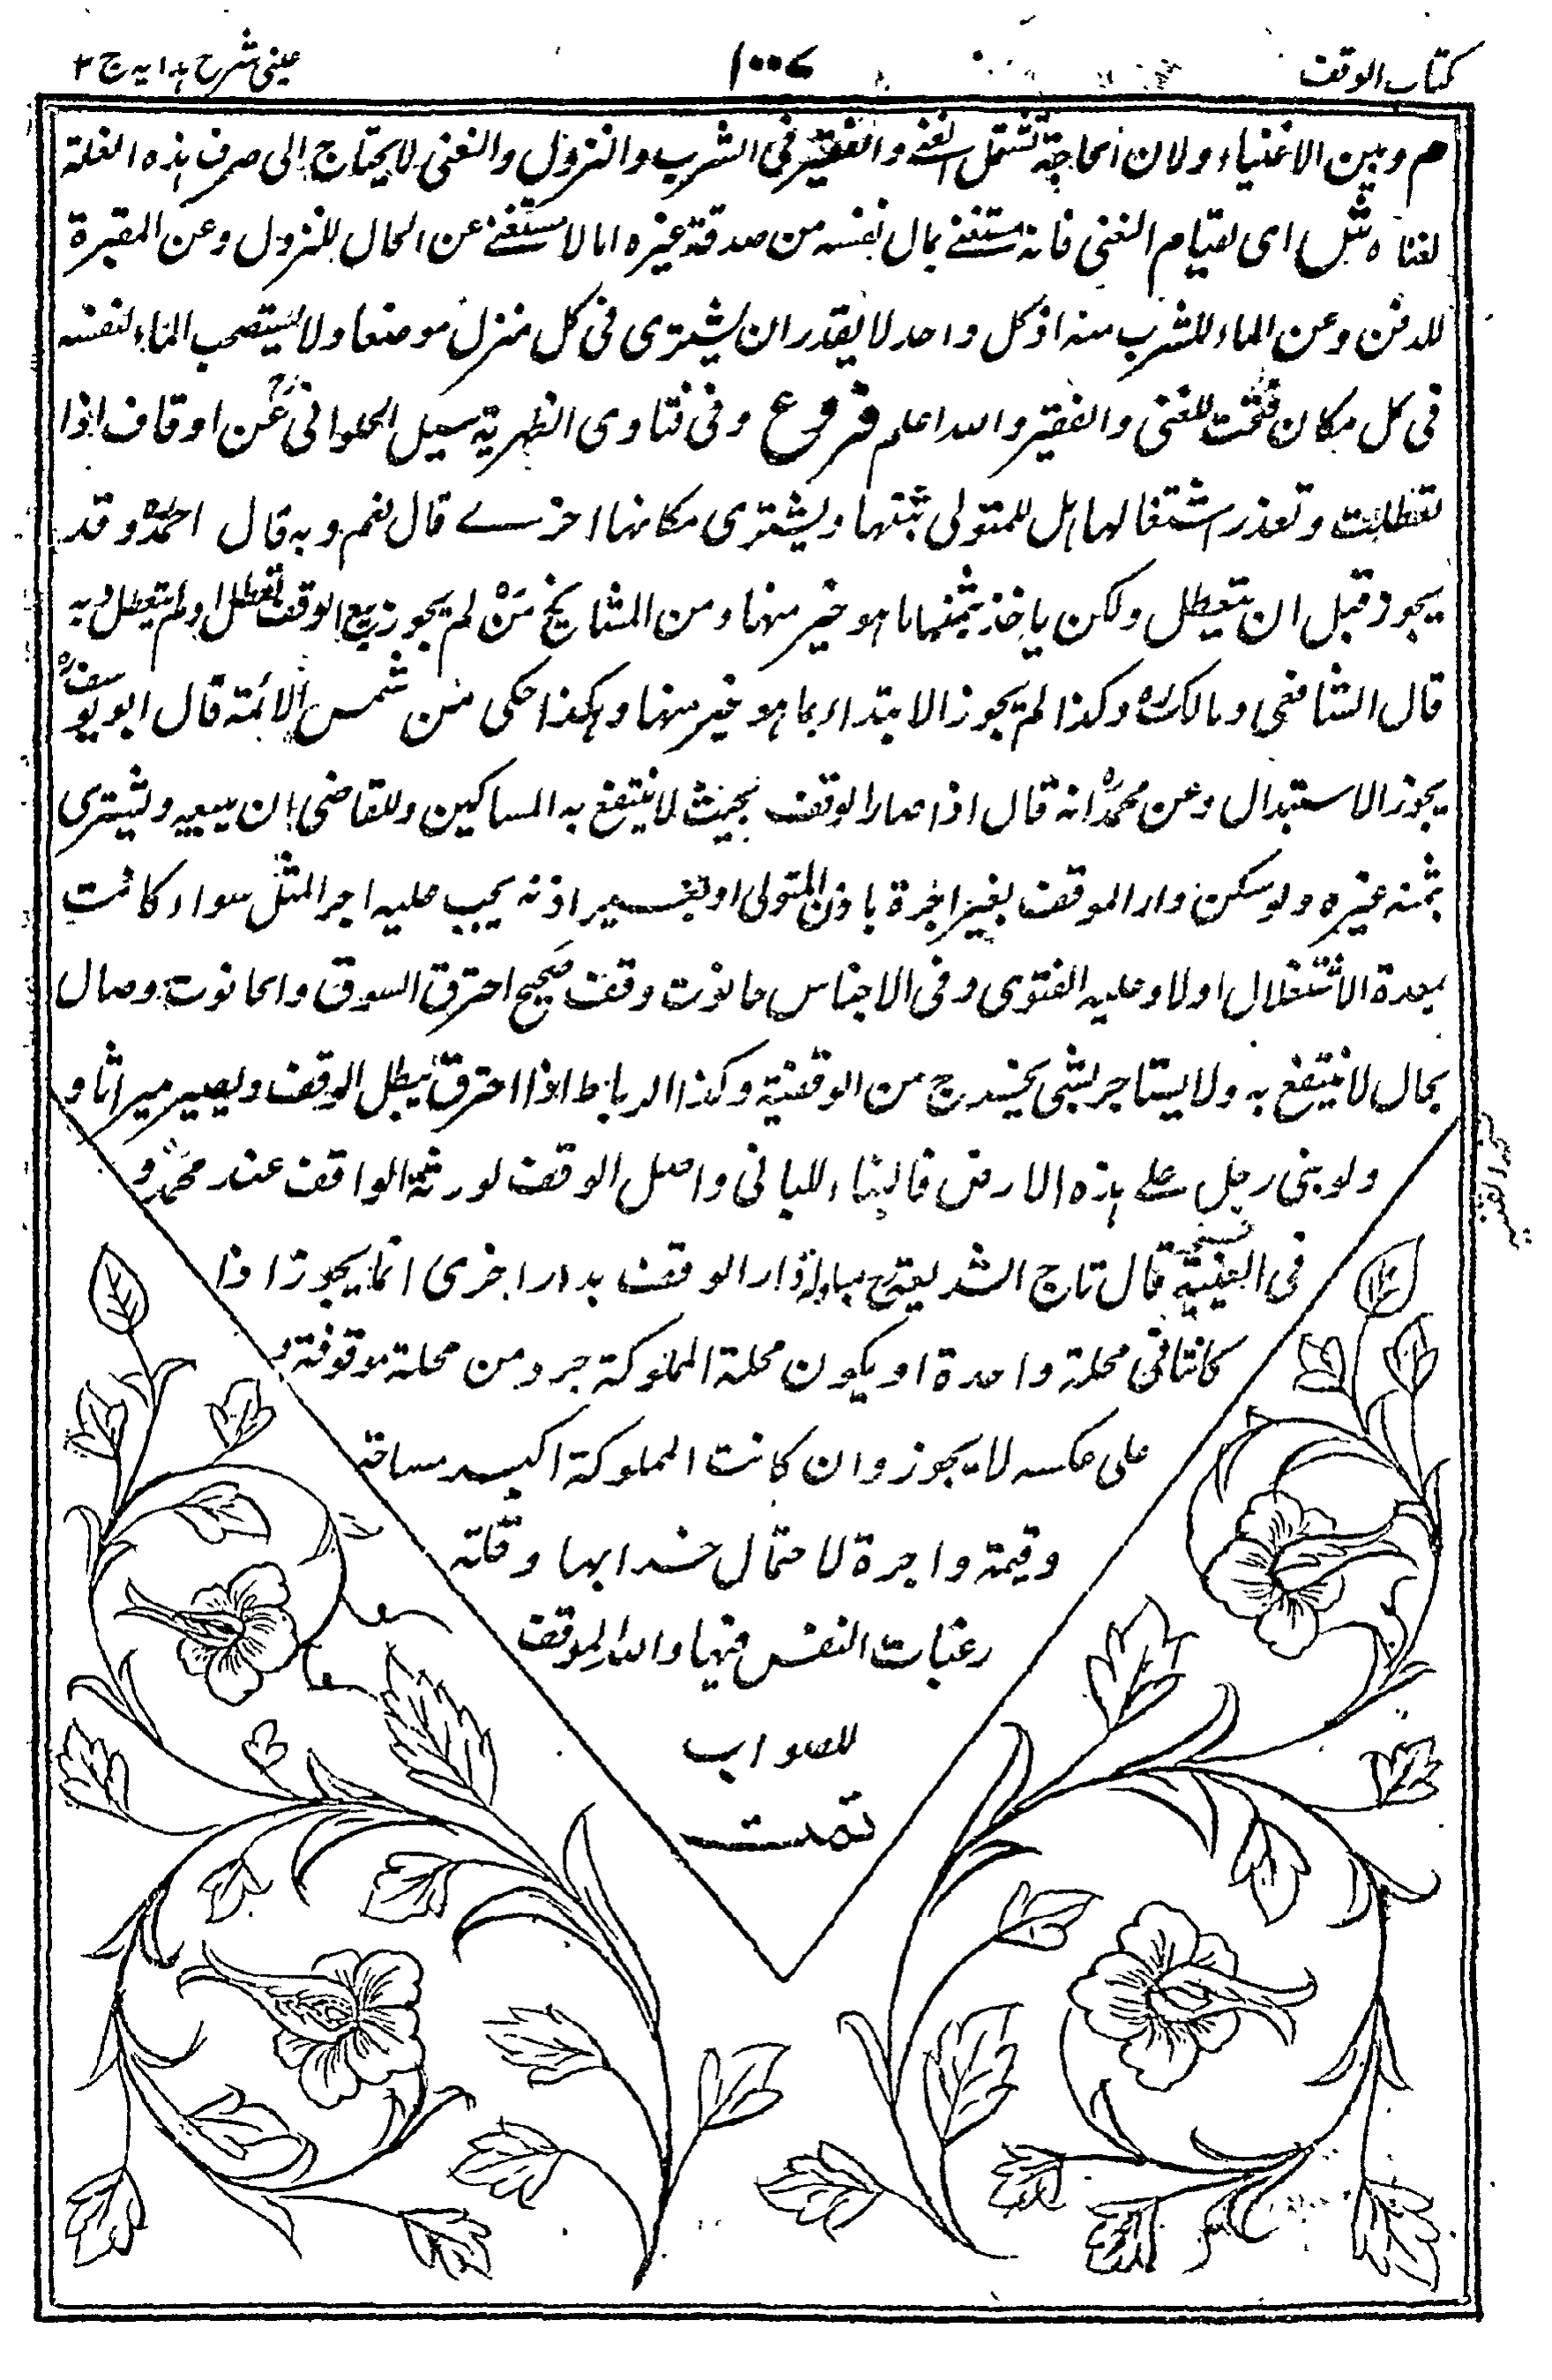 كتاب الوقف
١٠٠٧
عيني شرح هدايه ج ٢
م وبين الاغنياء ولان الحاجة تشمل الغنى والفقير فى الشرب والنزول والغنى لا يحتاج الى صرف هذه الغلة
لغناه ش اى لقيام الغنى فانه مستغنى بمال نفسه من صدقة غيره اما لا يستغنى عن الحال للنزول وعن المقبرة
للدفن وعن الماء للشرب منه اذ كل واحد لا يقدر ان يشترى فى كل منزل موضعا ولا يستصحب الماء لنفسه
فى كل مكان فتحت للغنى والفقير والله اعلم فروع وفى فتاوى الظهرية سيل الحلوانى رح عن اوقاف اذا
تعطلت وتعذر اشتغالها هل للمتولى بثمنها ويشترى مكانها اخرے قال نعم وبه قال احمدؒ وقد
يجوز قبل ان يتعطل ولكن ياخذ بثمنها ما هو خير منها ومن المشايخ مَنْ لم يجوز بيع الوقف تعطل او لم يتعطل وبه
قال الشافعى ومالكؒ وكذا لم يجوز الابتداء بما هو خير منها وهكذا حكى من شمس الائمة قال ابو يوسفؒ
يجوز الاستبدال وعن محمدؒ انه قال اذا صار الوقف بحيث لا ينتفع به المساكين وللقاضى ان يبيعه ويشترى
بثمنه غيره ولو سكن دار الموقف بغير اجرة باذن المتولى او بغير اذنه يجب عليه اجر المثل سواء كانت
بعدة الاشتغلال اولا وعليه الفتوى وفى الاجناس حانوت وقف صحيح احترق السوق والحانوت وصال
بحال لا ينتفع به ولا يستاجر بشى يخرج من الوقفية وكذا الرباط اذا احترق يبطل الوقف ويصير ميراثا و
ولو بنى رجل على هذه الارض فالبناء للبانى واصل الوقف لورثة الواقف عند محمدؒ و
فى القنية قال تاج الشريعةرح مبادلة دار الوقف بدار اخرى انما يجوز اذا
كانتا فى محلة واحدة او يكون محلة المملوكة جر ومن محلة موقوفة و
على عكسه لا يجوز وان كانت المملوكة اكبر مساحة
وقيمة واجرة لاحتمال خرابها وقلة
رغبات النفس فيها والله الموفق
للصواب
تمت